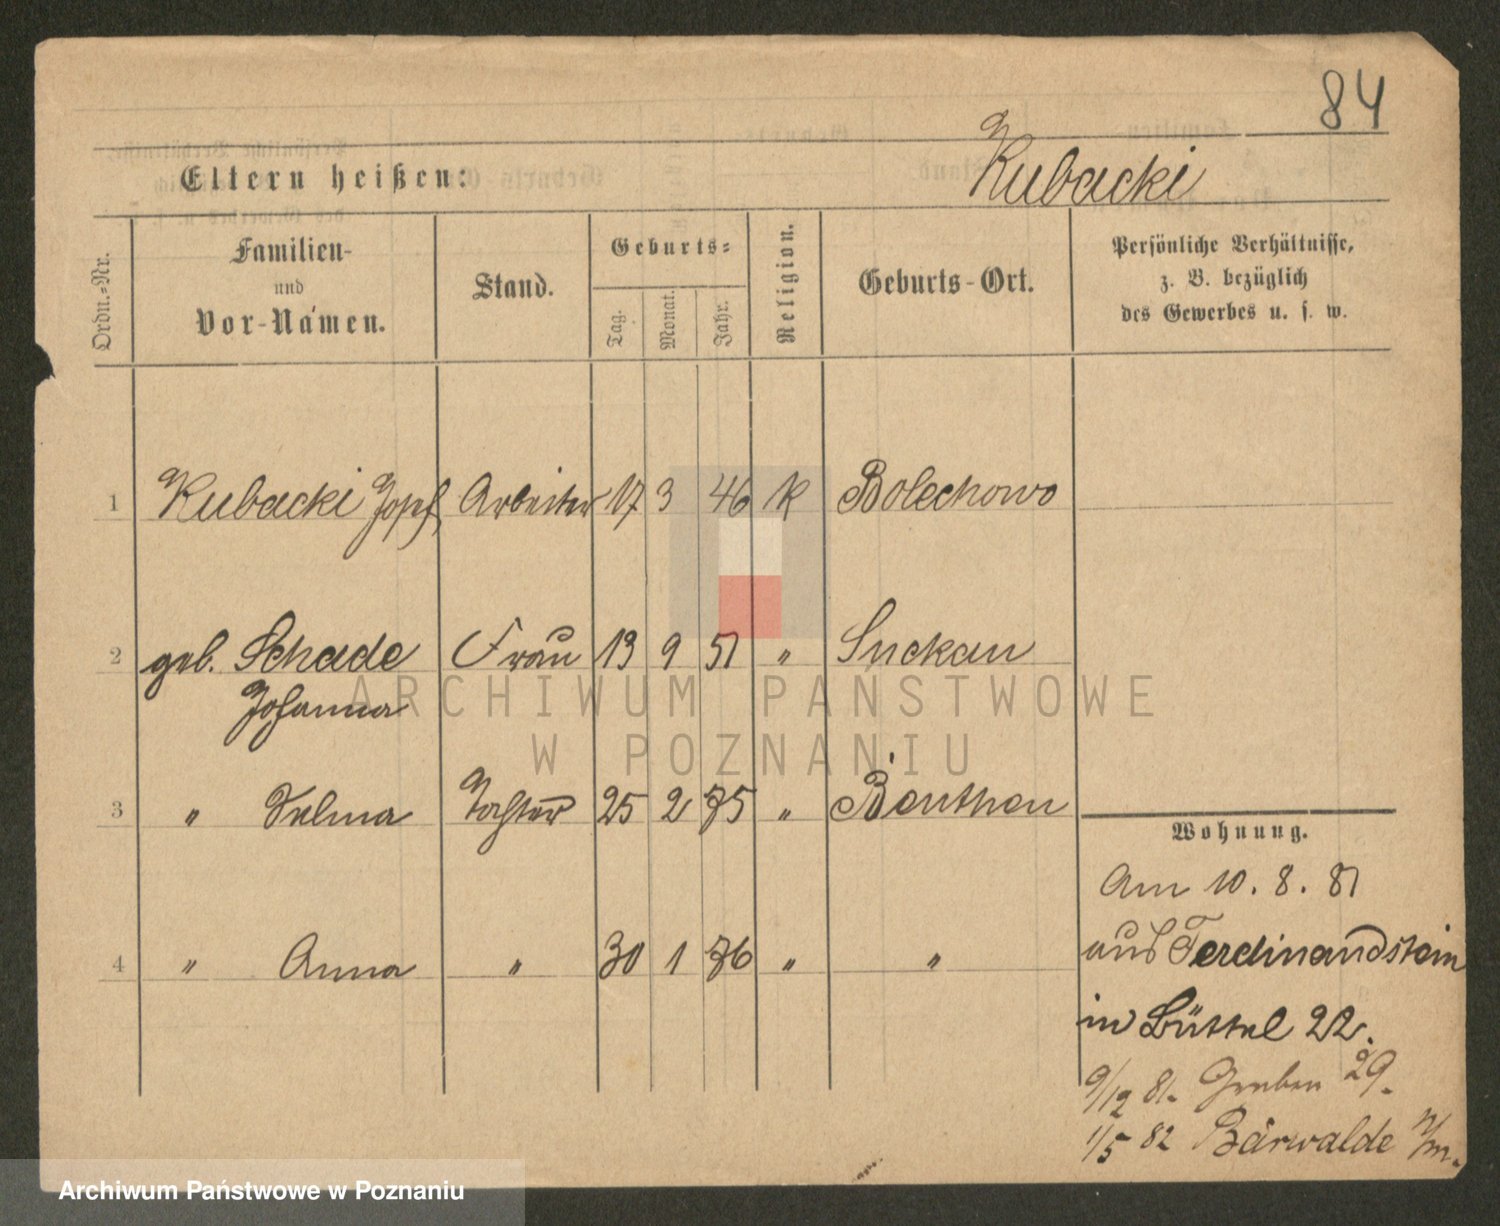 84
Eltern heißen:
Kubacki
Ordn.-Nr.
Familien-
und
Vor-Namen.
Stand.
Geburts-
Tag.
Monat.
Jahr.
Religion.
Geburts-Ort.
Persönliche Verhältnisse,
z. B. bezüglich
des Gewerbes u. s. w.
1 Kubacki Josef Arbeiter 17 3 46 K Bolechowo
2 geb. Schade Frau 13 9 51 " Suckau
Johanna
3 " Selma Tochter 25 2 75 " Beuthen
4 " Anna " 30 1 76 " "
Wohnung.
Am 10. 8. 81
aus Ferdinandstein
in Büttel 22.
9/12 81. Graben 29.
1/5 82 Bärwalde N/m.
ARCHIWUM PAŃSTWOWE
W POZNANIU
Archiwum Państwowe w Poznaniu